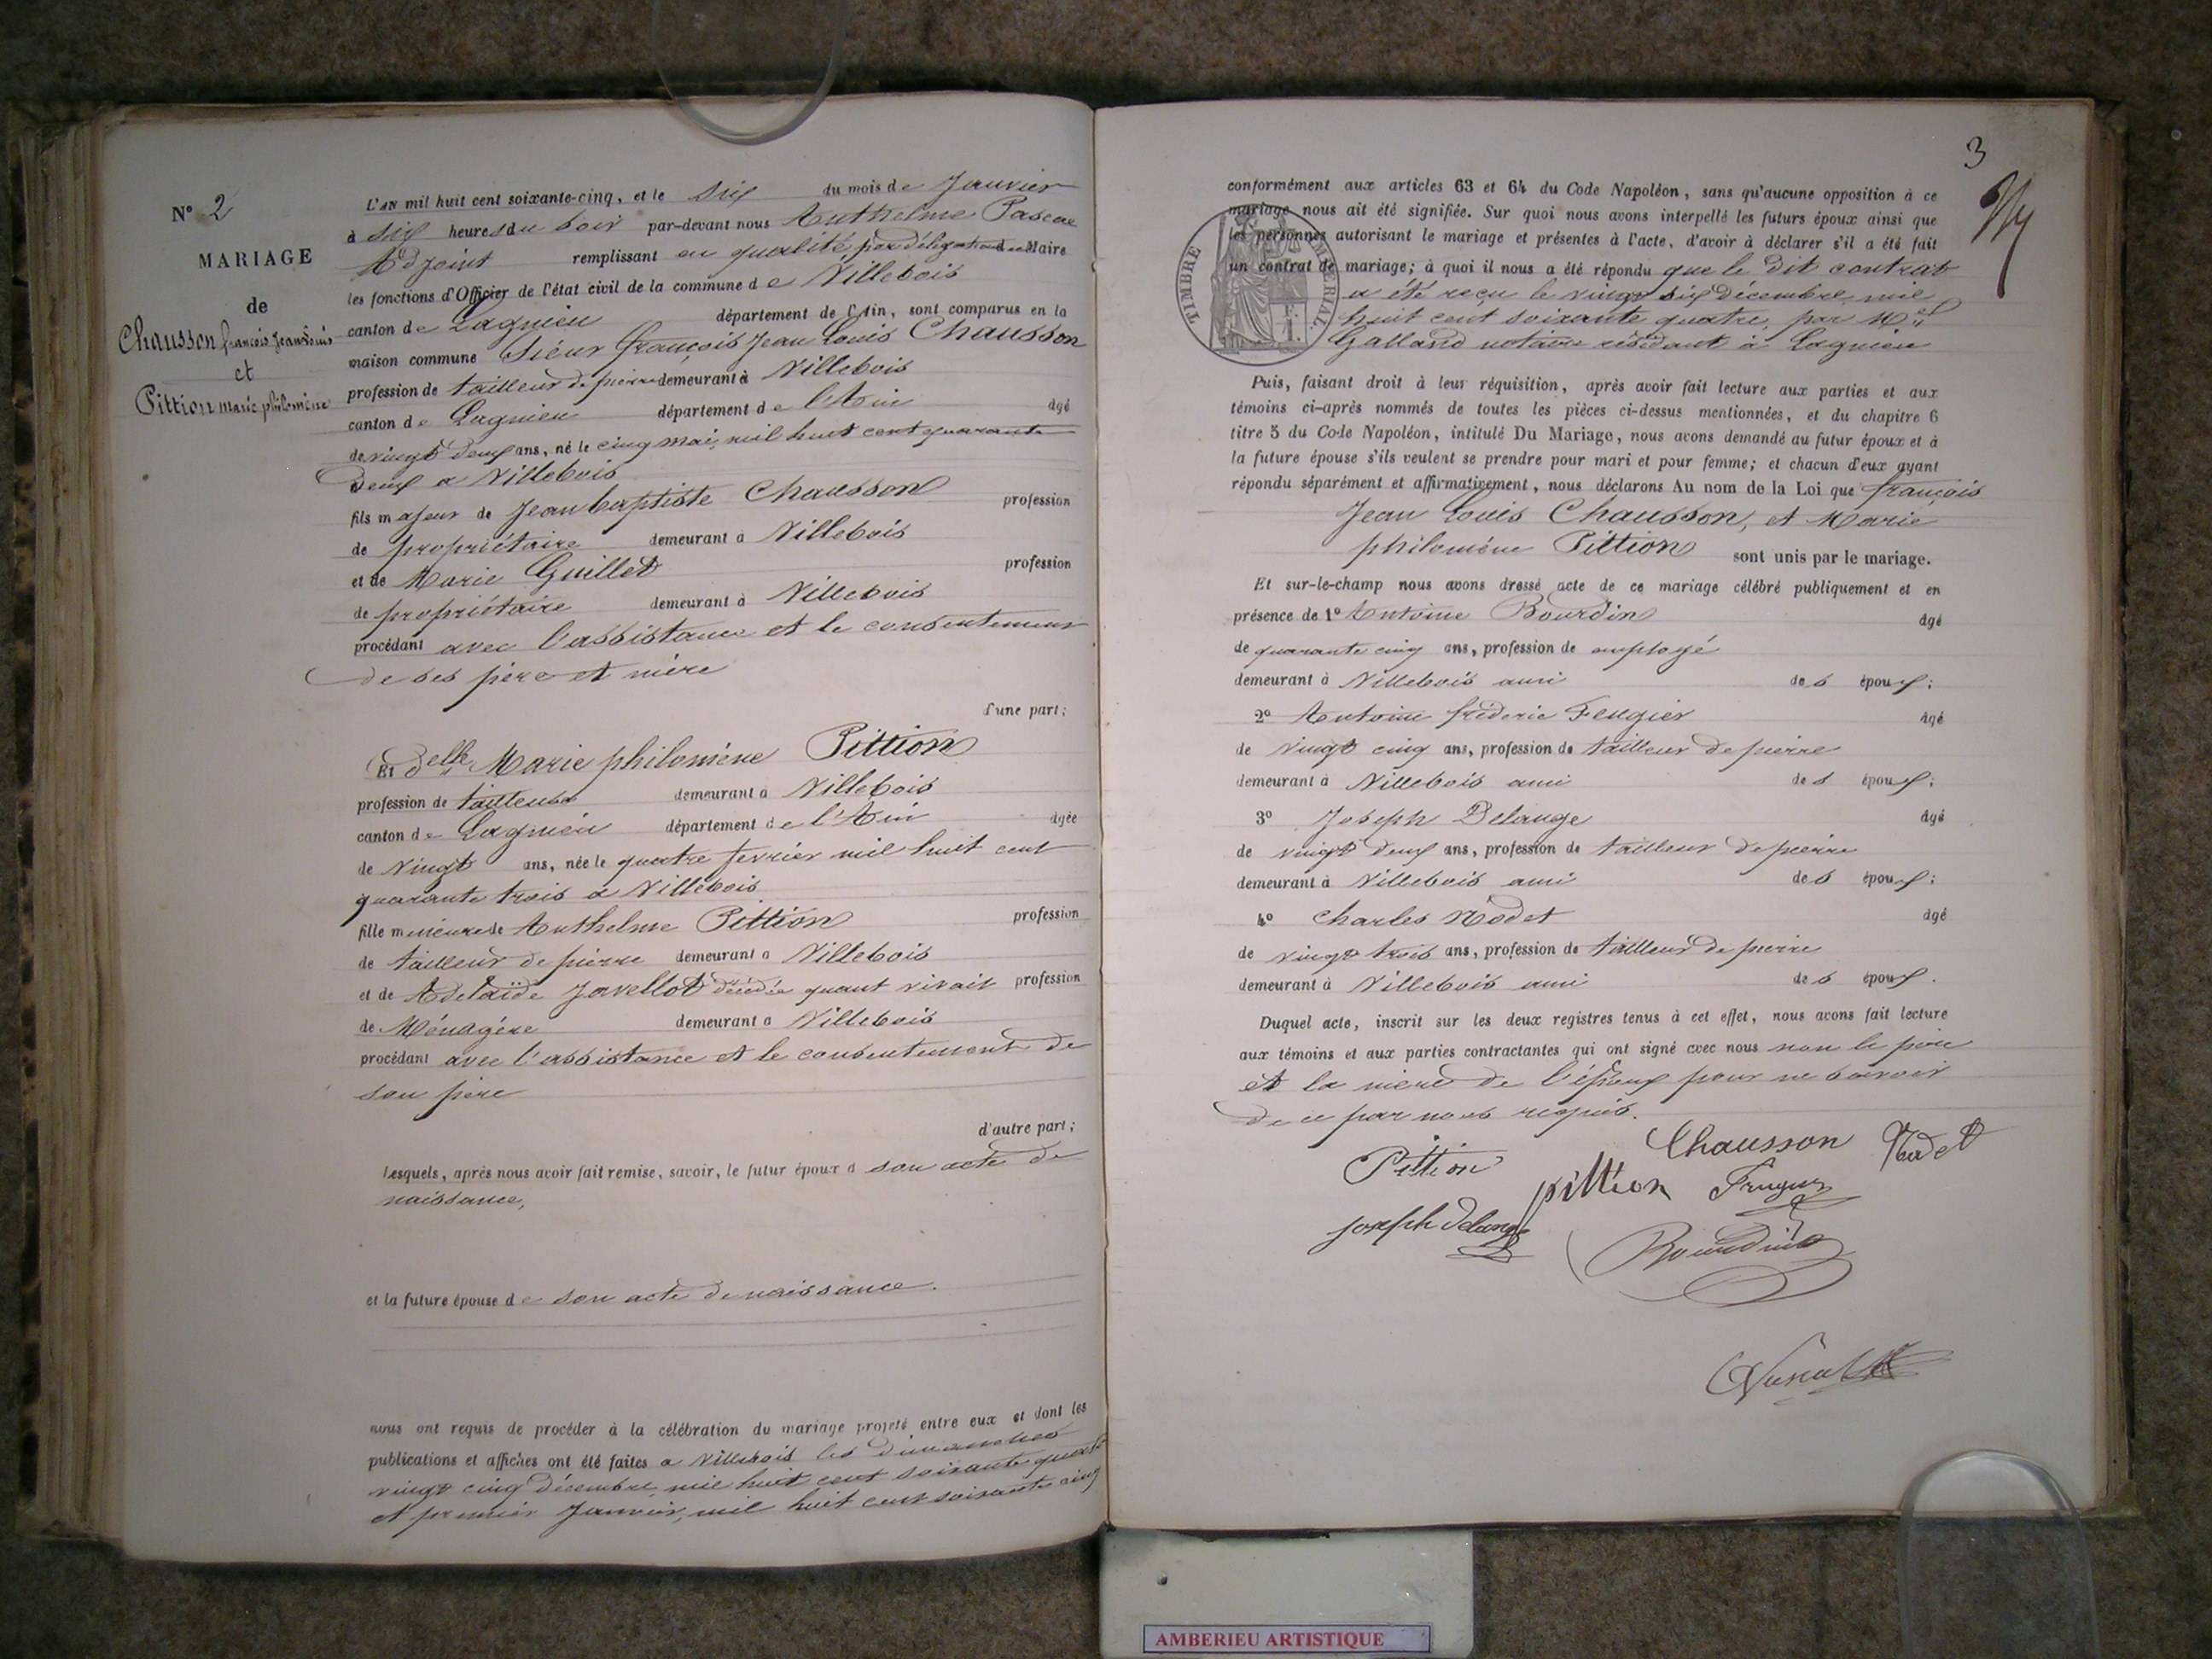 N° 2
MARIAGE
de
Chausson françois Jean Louis
et
Pittion marie philomène
L'AN mil huit cent soixante-cinq, et le six du mois de Janvier
à six heures du soir par-devant nous Anthelme Pascal
Adjoint remplissant en qualité, par délégation du Maire
les fonctions d'Officier de l'état civil de la commune de Villebois
canton de Lagnieu département de l'Ain, sont comparus en la
maison commune Siéur françois Jean Louis Chausson
profession de tailleur de pierre demeurant à Villebois
canton de Lagnieu département de l'Ain âgé
de vingt deux ans, né le cinq mai, mil huit cent quarante
deux a Villebois
fils majeur de Jean baptiste Chausson profession
de propriétaire demeurant à Villebois
et de Marie Guillet profession
de propriétaire demeurant à Villebois
procédant avec l'assistance et le consentement
de ses père et mère
d'une part;
Et Delle Marie philomène Pittion
profession de tailleuse demeurant à Villebois
canton de Lagnieu département de l'Ain âgée
de vingt ans, née le quatre fevrier mil huit cent
quarante trois a Villebois
fille mineure de Anthelme Pittion profession
de tailleur de pierre demeurant à Villebois
et de Adelaïde Javellot décédée quant vivait profession
de Ménagère demeurant à Villebois
procédant avec l'assistance et le consentement de
son père
d'autre part;
Lesquels, après nous avoir fait remise, savoir, le futur époux d son acte de
naissance,
et la future épouse de son acte de naissance.
nous ont requis de procéder à la célébration du mariage projeté entre eux et dont les
publications et affiches ont été faites a Villebois les dimanches
vingt cinq décembre, mil huit cent soixante quatre
et premier Janvier, mil huit cent soixante cinq
3
conformément aux articles 63 et 64 du Code Napoléon, sans qu'aucune opposition à ce
mariage nous ait été signifiée. Sur quoi nous avons interpellé les futurs époux ainsi que
les personnes autorisant le mariage et présentes à l'acte, d'avoir à déclarer s'il a été fait
un contrat de mariage; à quoi il nous a été répondu que le dit contrat
a été reçu le vingt six décembre, mil
huit cent soixante quatre, par Me
Galland notaire résidant à Lagnieu
TIMBRE IMPÉRIAL.
Puis, faisant droit à leur réquisition, après avoir fait lecture aux parties et aux
témoins ci-après nommés de toutes les pièces ci-dessus mentionnées, et du chapitre 6
titre 5 du Code Napoléon, intitulé Du Mariage, nous avons demandé au futur époux et à
la future épouse s'ils veulent se prendre pour mari et pour femme; et chacun d'eux ayant
répondu séparément et affirmativement, nous déclarons Au nom de la Loi que françois
Jean Louis Chausson, et Marie
philomène Pittion sont unis par le mariage.
Et sur-le-champ nous avons dressé acte de ce mariage célébré publiquement et en
présence de 1° Antoine Bourdin âgé
de quarante cinq ans, profession de employé
demeurant à Villebois ami des époux;
2° Antoine fréderic Feugier âgé
de vingt cinq ans, profession de tailleur de pierre
demeurant à Villebois ami des époux;
3° Joseph Delange âgé
de vingt deux ans, profession de tailleur de pierre
demeurant à Villebois ami des époux;
4° Charles Nodet âgé
de vingt trois ans, profession de tailleur de pierre
demeurant à Villebois ami des époux.
Duquel acte, inscrit sur les deux registres tenus à cet effet, nous avons fait lecture
aux témoins et aux parties contractantes qui ont signé avec nous non le père
et la mère de l'époux pour ne savoir
de ce par nous requis.
Pittion Chausson Nodet
pittion Feugier
joseph delange
Bourdin
AMBERIEU ARTISTIQUE